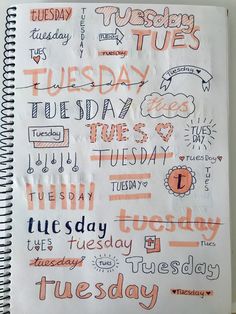 TUESDAY
TUESDAY
tuesday
TUES
TUESday
TUESDAY
TUES
TUESDAY
tuesday
Tuesday
Tues
TUESDAY
TUESDAY
Tuesday
TUES
TUES
TUESDAY
TUESDAY
TUESDAY
TUESDAY
t
TUES
tuesday
tuesday
TUES
tuesday
Tues
tuesday
Tuesday
tuesday
TUESDAY